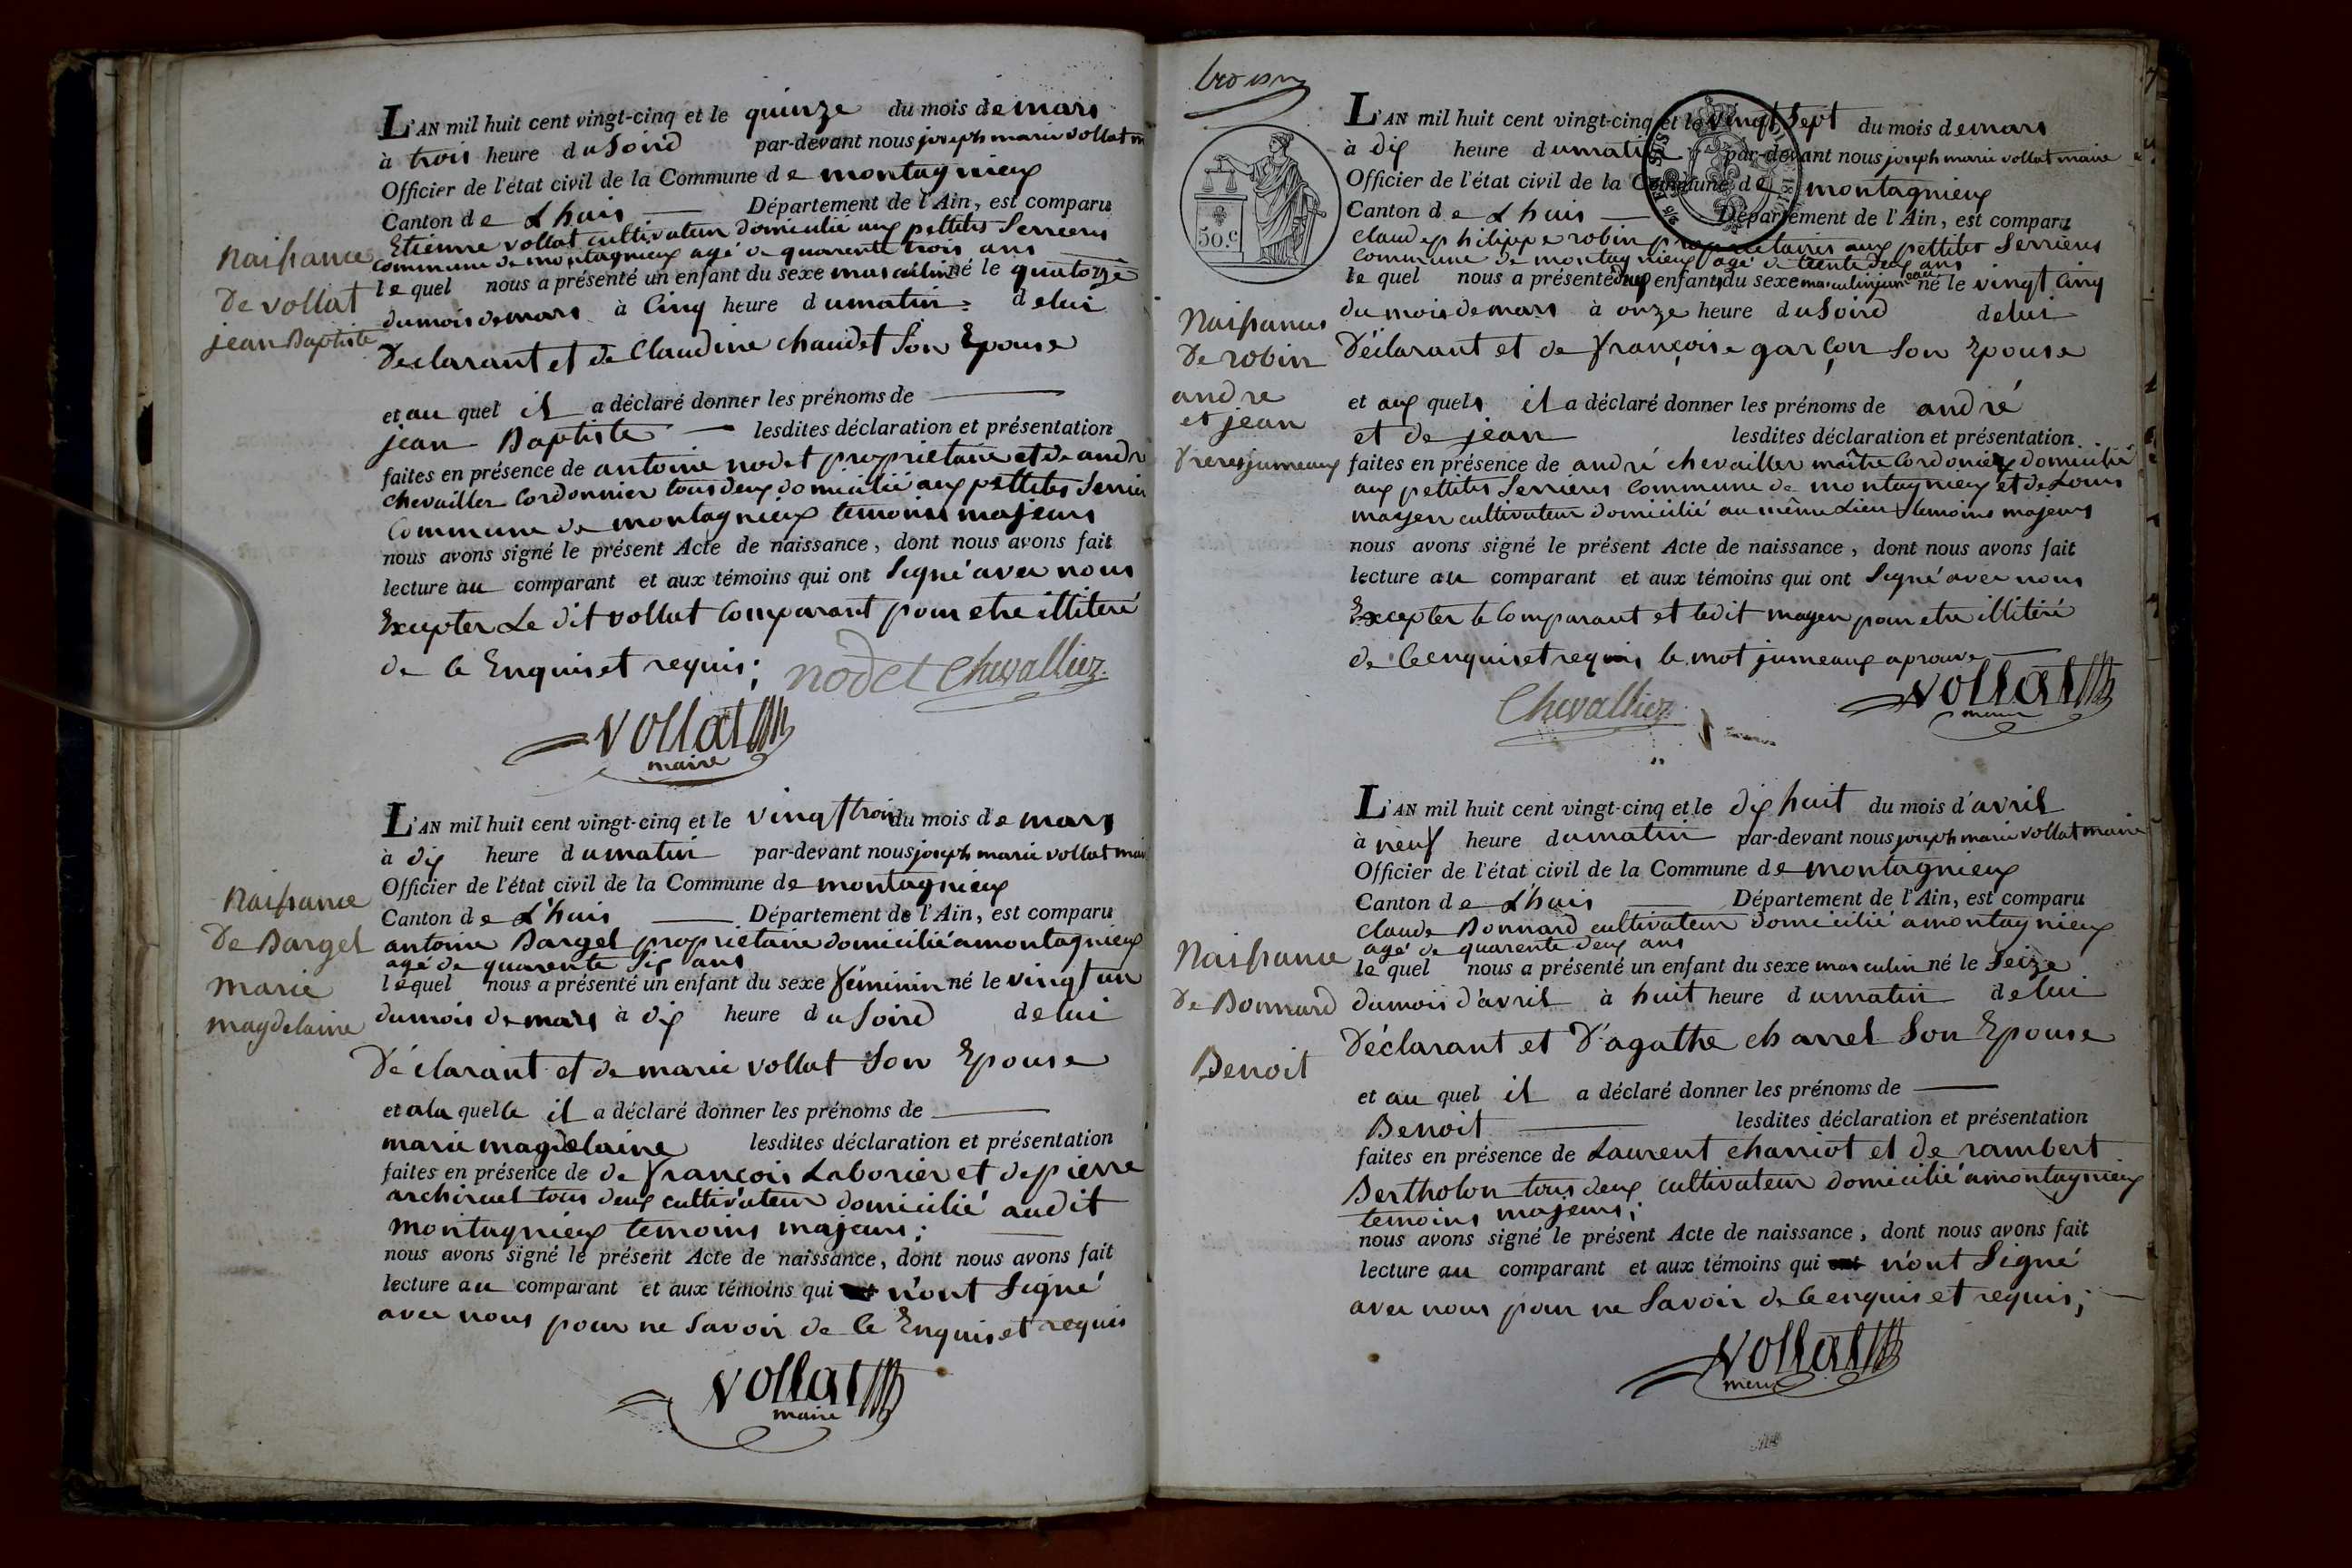 L'AN mil huit cent vingt-cinq et le quinze du mois de mars
à trois heure du soird par-devant nous joseph marie vollat m
Officier de l'état civil de la Commune de montagnieux
Canton de Lhuis Département de l'Ain, est comparu
Etienne vollat cultivateur domicilié aux pettites Serrieres
commune de montagnieux agé de quarente trois ans
lequel nous a présenté un enfant du sexe masculin né le quatorze
du mois de mars à Cinq heure du matin de lui
Déclarant et de Claudine chaudet Son Epouse
et au quel il a déclaré donner les prénoms de
jean Baptiste lesdites déclaration et présentation
faites en présence de antoine nodet propriétaire et de andr
chevailler Cordonnier tous deux domicilié aux pettites Serrier
Commune de montagnieux temoins majeurs
nous avons signé le présent Acte de naissance, dont nous avons fait
lecture au comparant et aux témoins qui ont Signé avec nous
Excepter Le dit vollat Comparant pour etre illiteré
de ce Enquis et requis; nodet Chevallier
vollat
maire
Naissance
De vollat
jean Baptiste
L'AN mil huit cent vingt-cinq et le vingt trois du mois de mars
à dix heure du matin par-devant nous joseph marie vollat mai
Officier de l'état civil de la Commune de montagnieux
Canton de L'huis Département de l'Ain, est comparu
antoine Bargel propriétaire domicilié a montagnieux
agé de quarente Six ans
lequel nous a présenté un enfant du sexe féminin né le vingt un
du mois de mars à dix heure du Soird de lui
Déclarant et de marie vollat Son Epouse
et a la quelle il a déclaré donner les prénoms de
marie magdelaine lesdites déclaration et présentation
faites en présence de de françois Laborier et de pierre
archiruel tous deux cultivateur domicilié audit
montagnieux temoins majeurs;
nous avons signé le présent Acte de naissance, dont nous avons fait
lecture au comparant et aux témoins qui n'ont Signé
avec nous pour ne Savoir de ce Enquis et requis
vollat
maire
Naissance
De Bargel
marie
magdelaine
50.c
L'AN mil huit cent vingt-cinq et le vingt Sept du mois de mars
à dix heure du matin par-devant nous joseph marie vollat maire
Officier de l'état civil de la Commune de montagnieux
Canton de Lhuis Département de l'Ain, est comparu
Claude philippe robin propriétaires aux pettites Serrieres
Commune de montagnieux agé de trente deux ans
lequel nous a présenté deux enfants du sexe masculin jumeaux né le vingt Cinq
du mois de mars à onze heure du Soird de lui
Déclarant et de françoise garçon Son Epouse
et aux quels il a déclaré donner les prénoms de andré
et de jean lesdites déclaration et présentation
faites en présence de andré chevailler maître Cordonier domicilié
aux pettites Serrieres Commune de montagnieux et de Louis
mayen cultivateur domicilié au même Lieu temoins majeurs
nous avons signé le présent Acte de naissance, dont nous avons fait
lecture au comparant et aux témoins qui ont Signé avec nous
Excepter le Comparant et ledit mayen pour etre illitéré
de ce enquis et requis le mot jumeaux aprouve
Chevallier vollat
maire
Naissances
De robin
andre
et jean
freres jumeaux
L'AN mil huit cent vingt-cinq et le dix huit du mois d'avril
à neuf heure du matin par-devant nous joseph marie vollat maire
Officier de l'état civil de la Commune de montagnieux
Canton de L'huis Département de l'Ain, est comparu
Claude Bonnard cultivateur domicilié a montagnieux
agé de quarente deux ans
lequel nous a présenté un enfant du sexe masculin né le Seize
du mois d'avril à huit heure du matin de lui
Déclarant et d'agathe charrel Son Epouse
et au quel il a déclaré donner les prénoms de
Benoit lesdites déclaration et présentation
faites en présence de Laurent charriot et de rambert
Bertholon tous deux cultivateur domicilié a montagnieux
temoins majeurs;
nous avons signé le présent Acte de naissance, dont nous avons fait
lecture au comparant et aux témoins qui n'ont Signé
avec nous pour ne Savoir de ce enquis et requis;
vollat
maire
Naissance
De Bonnard
Benoit